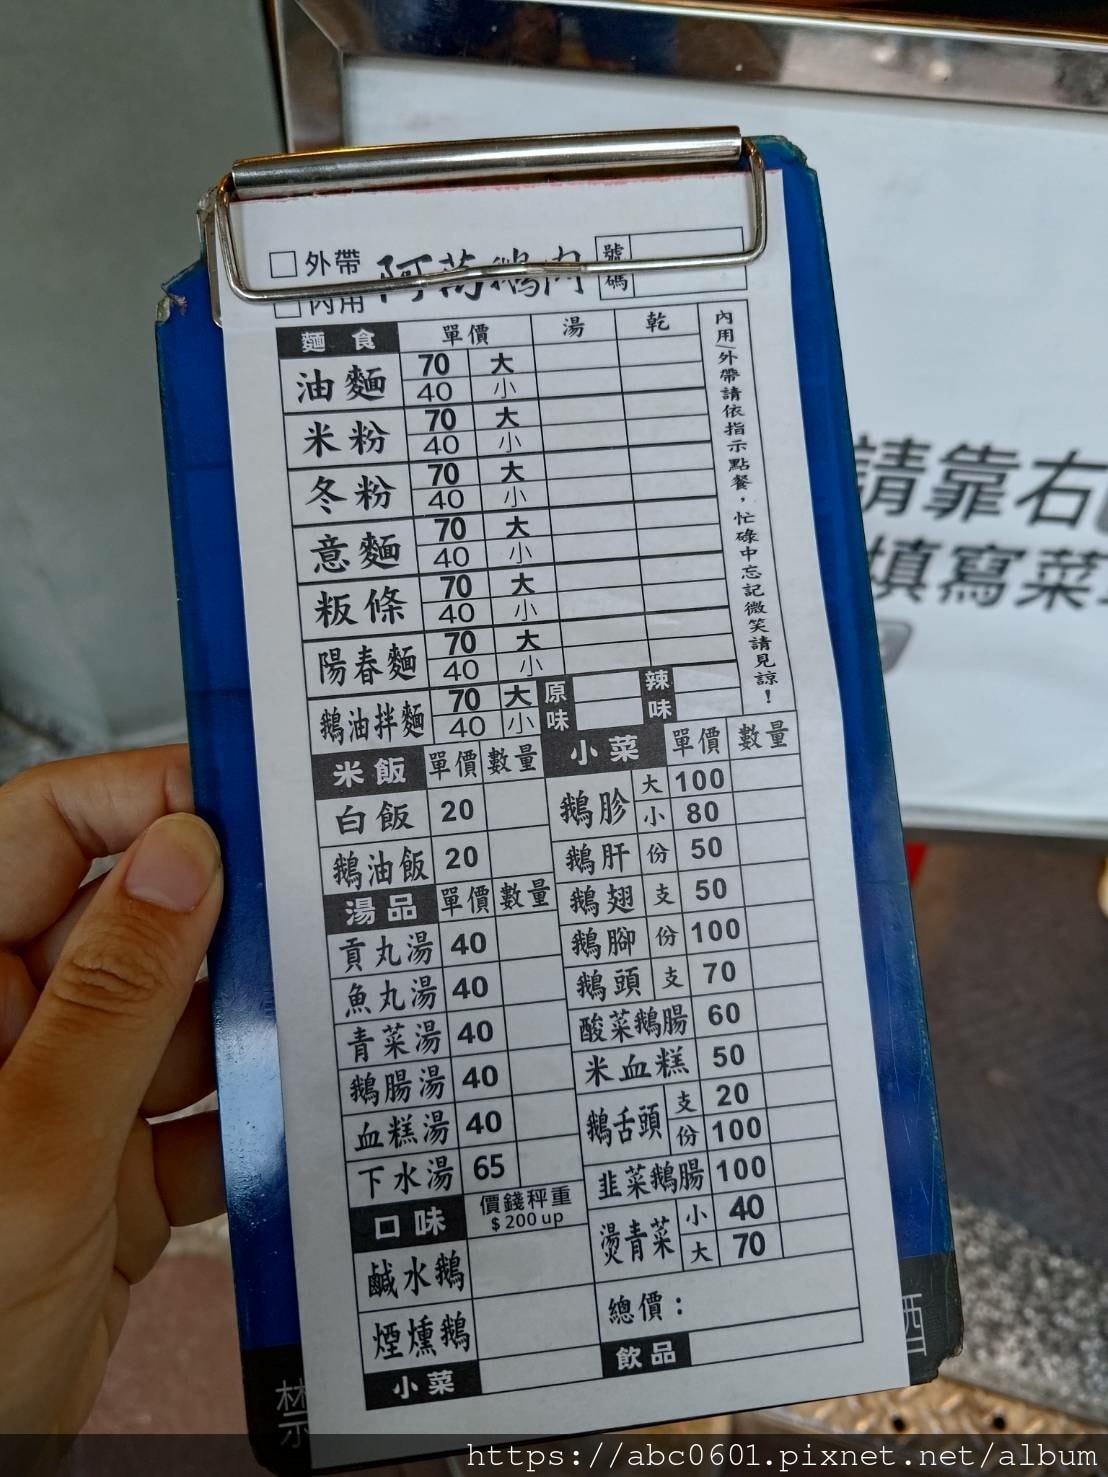 外帶
內用
阿萬鵝肉
號碼
麵食 單價 湯 乾
油麵 70 大
40 小
米粉 70 大
40 小
冬粉 70 大
40 小
意麵 70 大
40 小
粄條 70 大
40 小
陽春麵 70 大
40 小
鵝油拌麵 70 大 原味 辣味
40 小
內用/外帶請依指示點餐，忙碌中忘記微笑請見諒！
米飯 單價 數量
白飯 20
鵝油飯 20
湯品 單價 數量
貢丸湯 40
魚丸湯 40
青菜湯 40
鵝腸湯 40
血糕湯 40
下水湯 65
口味 價錢秤重
$200up
鹹水鵝
煙燻鵝
小菜
小菜 單價 數量
鵝胗 大 100
小 80
鵝肝 份 50
鵝翅 支 50
鵝腳 份 100
鵝頭 支 70
酸菜鵝腸 60
米血糕 50
鵝舌頭 支 20
份 100
韭菜鵝腸 100
燙青菜 小 40
大 70
總價：
飲品
請靠右
填寫菜
禁
https://abc0601.pixnet.net/album